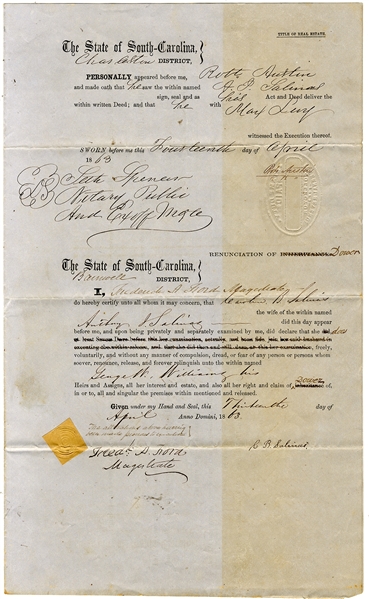 TITLE OF REAL ESTATE.
The State of South-Carolina,
Charleston DISTRICT,
PERSONALLY appeared before me, Robt Austin
and made oath that he saw the within named A J Salinas
sign, seal and as his Act and Deed deliver the
within written Deed; and that he with Max Levy
witnessed the Execution thereof.
SWORN before me this Fourteenth day of April
1863
Robt Austin
Seth Spencer
Notary Public
And Ex off Mgte
RENUNCIATION OF INHERITANCE Dower
The State of South-Carolina,
Barnwell DISTRICT,
I, Frederick A Ford Magistrate
do hereby certify unto all whom it may concern, that B Salinas
the wife of the within named
Anthony J Salinas did this day appear
before me, and upon being privately and separately examined by me, did declare that she did does
freely,
voluntarily, and without any manner of compulsion, dread, or fear of any person or persons whom
soever, renounce, release, and forever relinquish unto the within named
George W. Williams, his
Heirs and Assigns, all her interest and estate, and also all her right and claim of dower
in or to, all and singular the premises within mentioned and released.
Given under my Hand and Seal, this Thirteenth day of
April Anno Domini, 1863.
C B Salinas
Fredk A. Ford
Magistrate